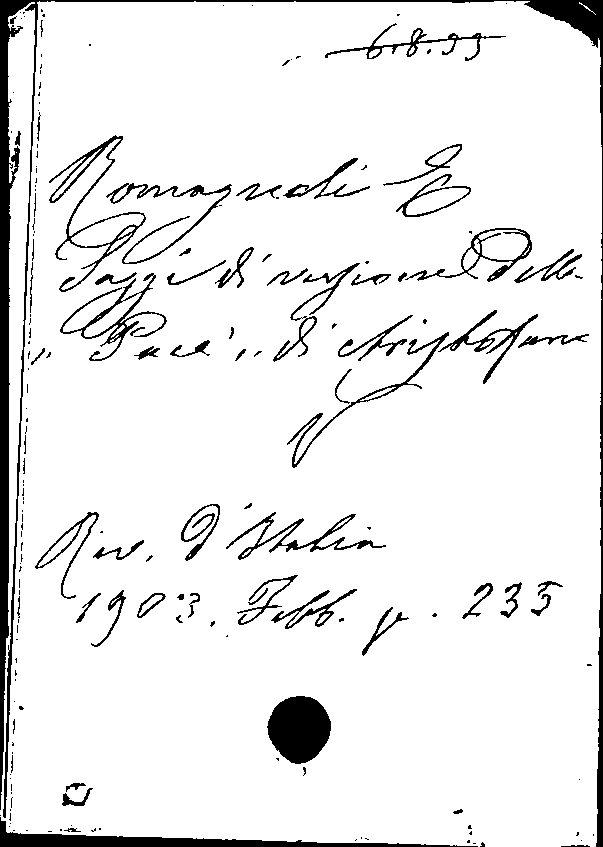 6.8.99
Romagnoli E
Saggi di versione della
„Pace„ di Aristofane
Riv. d'Italia
1903. Febb. p. 235